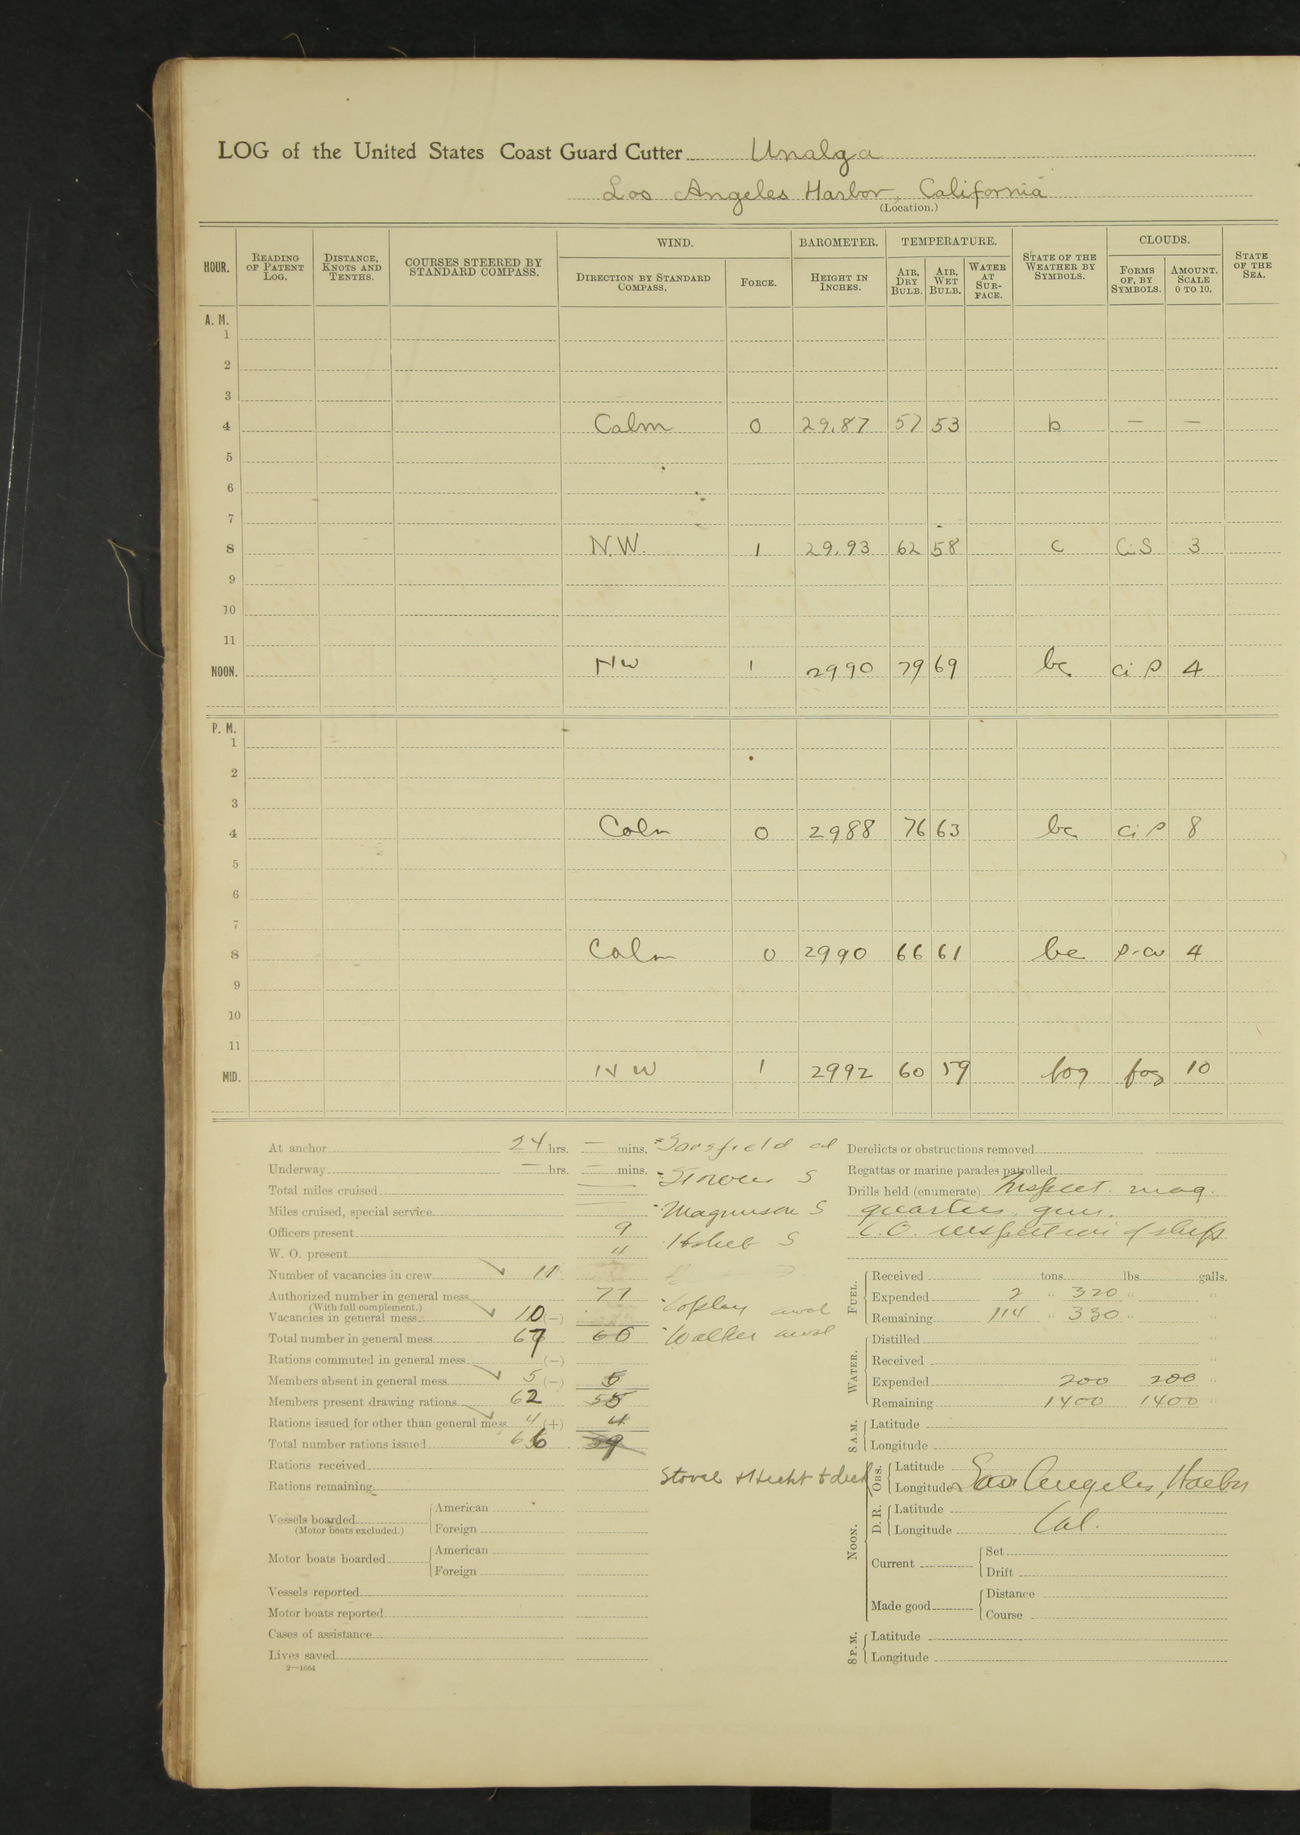 LOG of the United States Coast Guard Cutter Unalga
Los Angeles Harbor, California
(Location.)
HOUR. READING OF PATENT LOG. DISTANCE, KNOTS AND TENTHS. COURSES STEERED BY STANDARD COMPASS. WIND. BAROMETER. TEMPERATURE. STATE OF THE WEATHER BY SYMBOLS. CLOUDS. STATE OF THE SEA.
DIRECTION BY STANDARD COMPASS. FORCE. HEIGHT IN INCHES. AIR, DRY BULB. AIR, WET BULB. WATER AT SURFACE. FORMS OF, BY SYMBOLS. AMOUNT. SCALE 0 TO 10.
A. M.
1
2
3
4 Calm 0 29.87 57 53 b — —
5
6
7
8 N.W. 1 29.93 62 58 c Ci.S 3
9
10
11
NOON. NW 1 2990 79 69 bc Ci S 4
P. M.
1
2
3
4 Calm 0 2988 76 63 bc Ci S 8
5
6
7
8 Calm 0 2990 66 61 bc S-cu 4
9
10
11
MID. NW 1 2992 60 59 fog fog 10
At anchor 24 hrs. — mins.
Underway — hrs. — mins.
Total miles cruised —
Miles cruised, special service —
Officers present 9
W. O. present 4
Number of vacancies in crew 11
Authorized number in general mess 77
(With full complement.)
Vacancies in general mess 10 (—)
Total number in general mess 67 60
Rations commuted in general mess (—)
Members absent in general mess 5 (—) 5
Members present drawing rations 62 55
Rations issued for other than general mess 4 (+) 4
Total number rations issued 66 59
Rations received
Rations remaining
Vessels boarded American
(Motor boats excluded.) Foreign
Motor boats boarded American
Foreign
Vessels reported
Motor boats reported
Cases of assistance
Lives saved
2—1664
Sarsfield al
S
Magnuson S
S
Copley awol
Walker awol
Stovel + Hecht
Derelicts or obstructions removed
Regattas or marine parades patrolled
Drills held (enumerate) Inspect. mag.
quarters, gun.
C.O. inspection of ship
FUEL. Received tons lbs. galls.
Expended 2 " 320 " "
Remaining 114 " 330 " "
WATER. Distilled "
Received "
Expended 200 200 "
Remaining 1400 1400 "
8 A.M. Latitude
Longitude
NOON. OBS. Latitude
Longitude Los Angeles, Harbor
D. R. Latitude
Longitude Cal.
Current Set
Drift
Made good Distance
Course
8 P.M. Latitude
Longitude